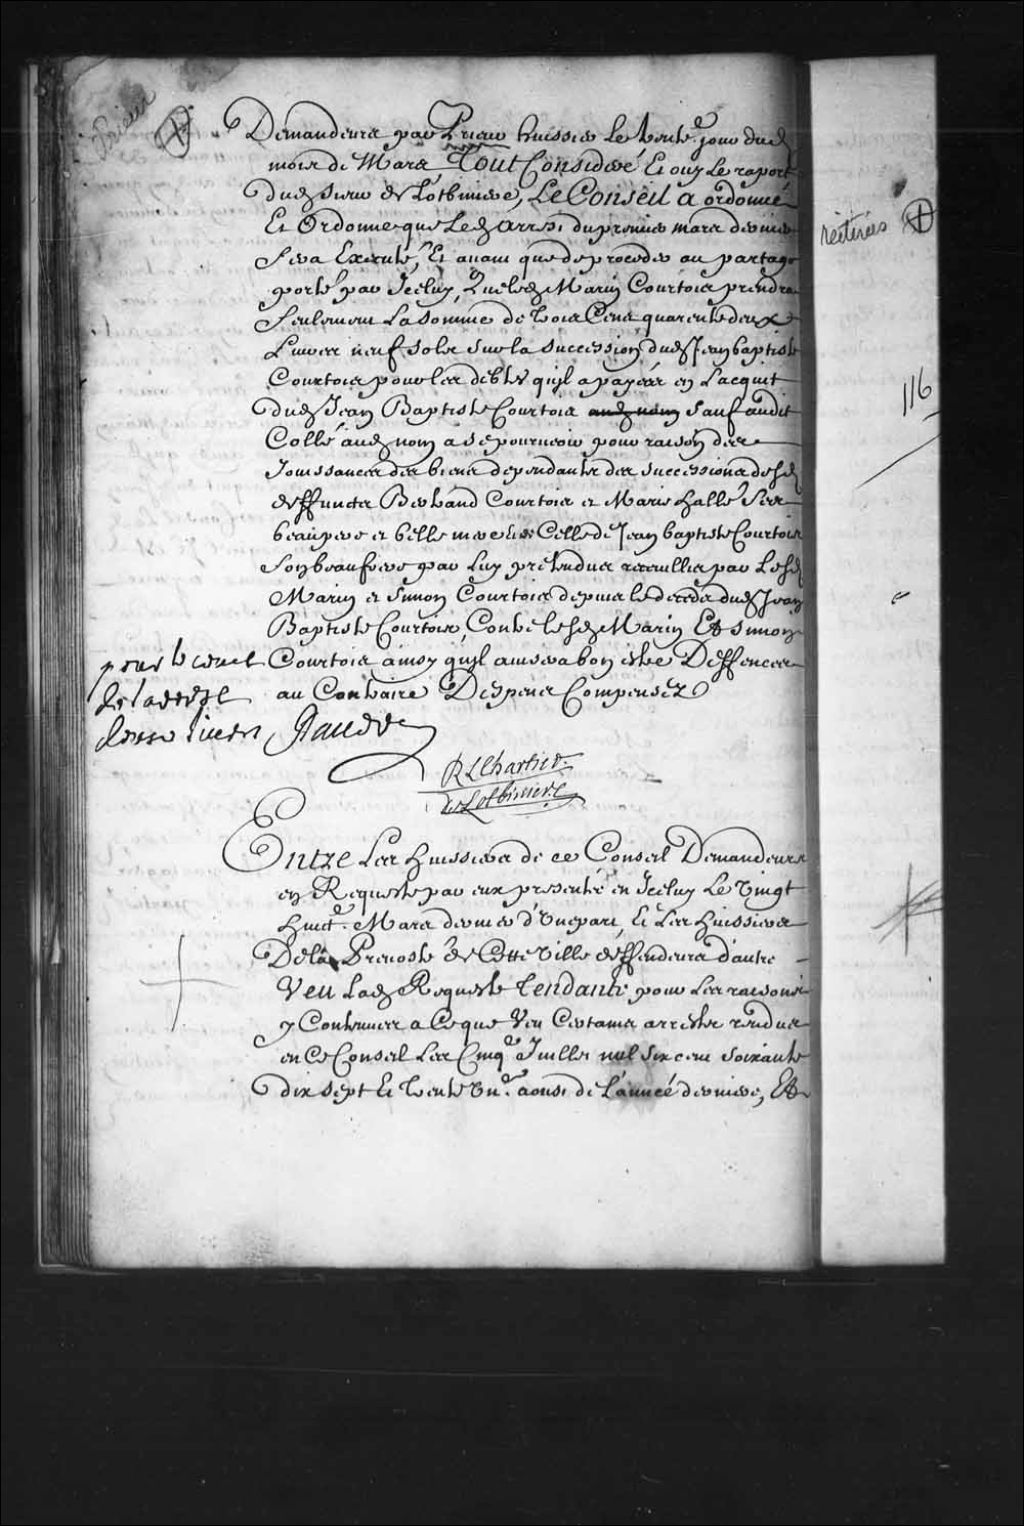 Prieur
Demandeurs par Prieur huissier le trente.e jour dud.
mois de Mars Tout Consideré Et ouy Le raport
dud. Sieur de Lotbiniere, Le Conseil a ordonné
Et Ordonne que Led. arrest du premier mars dernier
sera Executé, Et avant que de proceder au partage
porté par Iceluy, Que led. Marin Courtois prendra
seulement La somme de trois Cens quarente deux
Livres neuf sols sur la succession dud. Jean baptiste
Courtois pour les debtes qu'il a payées en L'acquit
dud. Jean Baptiste Courtois aud. nom sauf audit
Collé aud. nom a se pourveoir pour raison des
Jouissances des biens dependants des successions desd.
deffuncts Bertrand Courtois et Marie hallé ses
beau pere et belle mere et Celle de Jean baptiste Courtois
son beaufrere par Luy pretendues receuillies par Lesd.
Marin et Simon Courtois depuis le decedz dud. Jean
Baptiste Courtois, Contre lesd. Marin Et Simon
Courtois ainsy qu'il avisera bon estre Deffences
au Contraire Despens Compensez
R L Chartier
de Lotbiniere
Entre Les huissiers de ce Conseil Demandeurs
en Requeste par eux presentée en Iceluy Le vingt
huict.e Mars dernier d'Une part, Et Les huissiers
De la Prevosté de Cette ville deffendeurs d'autre
Veu Lad. Requeste tendante pour Les raisons
y Contenues a Ce que Veu Certains arrests rendus
en Ce Conseil Les Cinq.e Juillet mil six cens soixante
dix sept Et trente Un.e aoust de L'année derniere, Et
reiterées
116